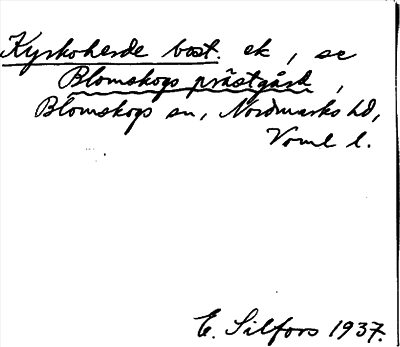 Kyrkoherde bost. ek, se
Blomskogs prästgård,
Blomskogs sn, Nordmarks hd,
Verml l.
E. Silfors 1937.